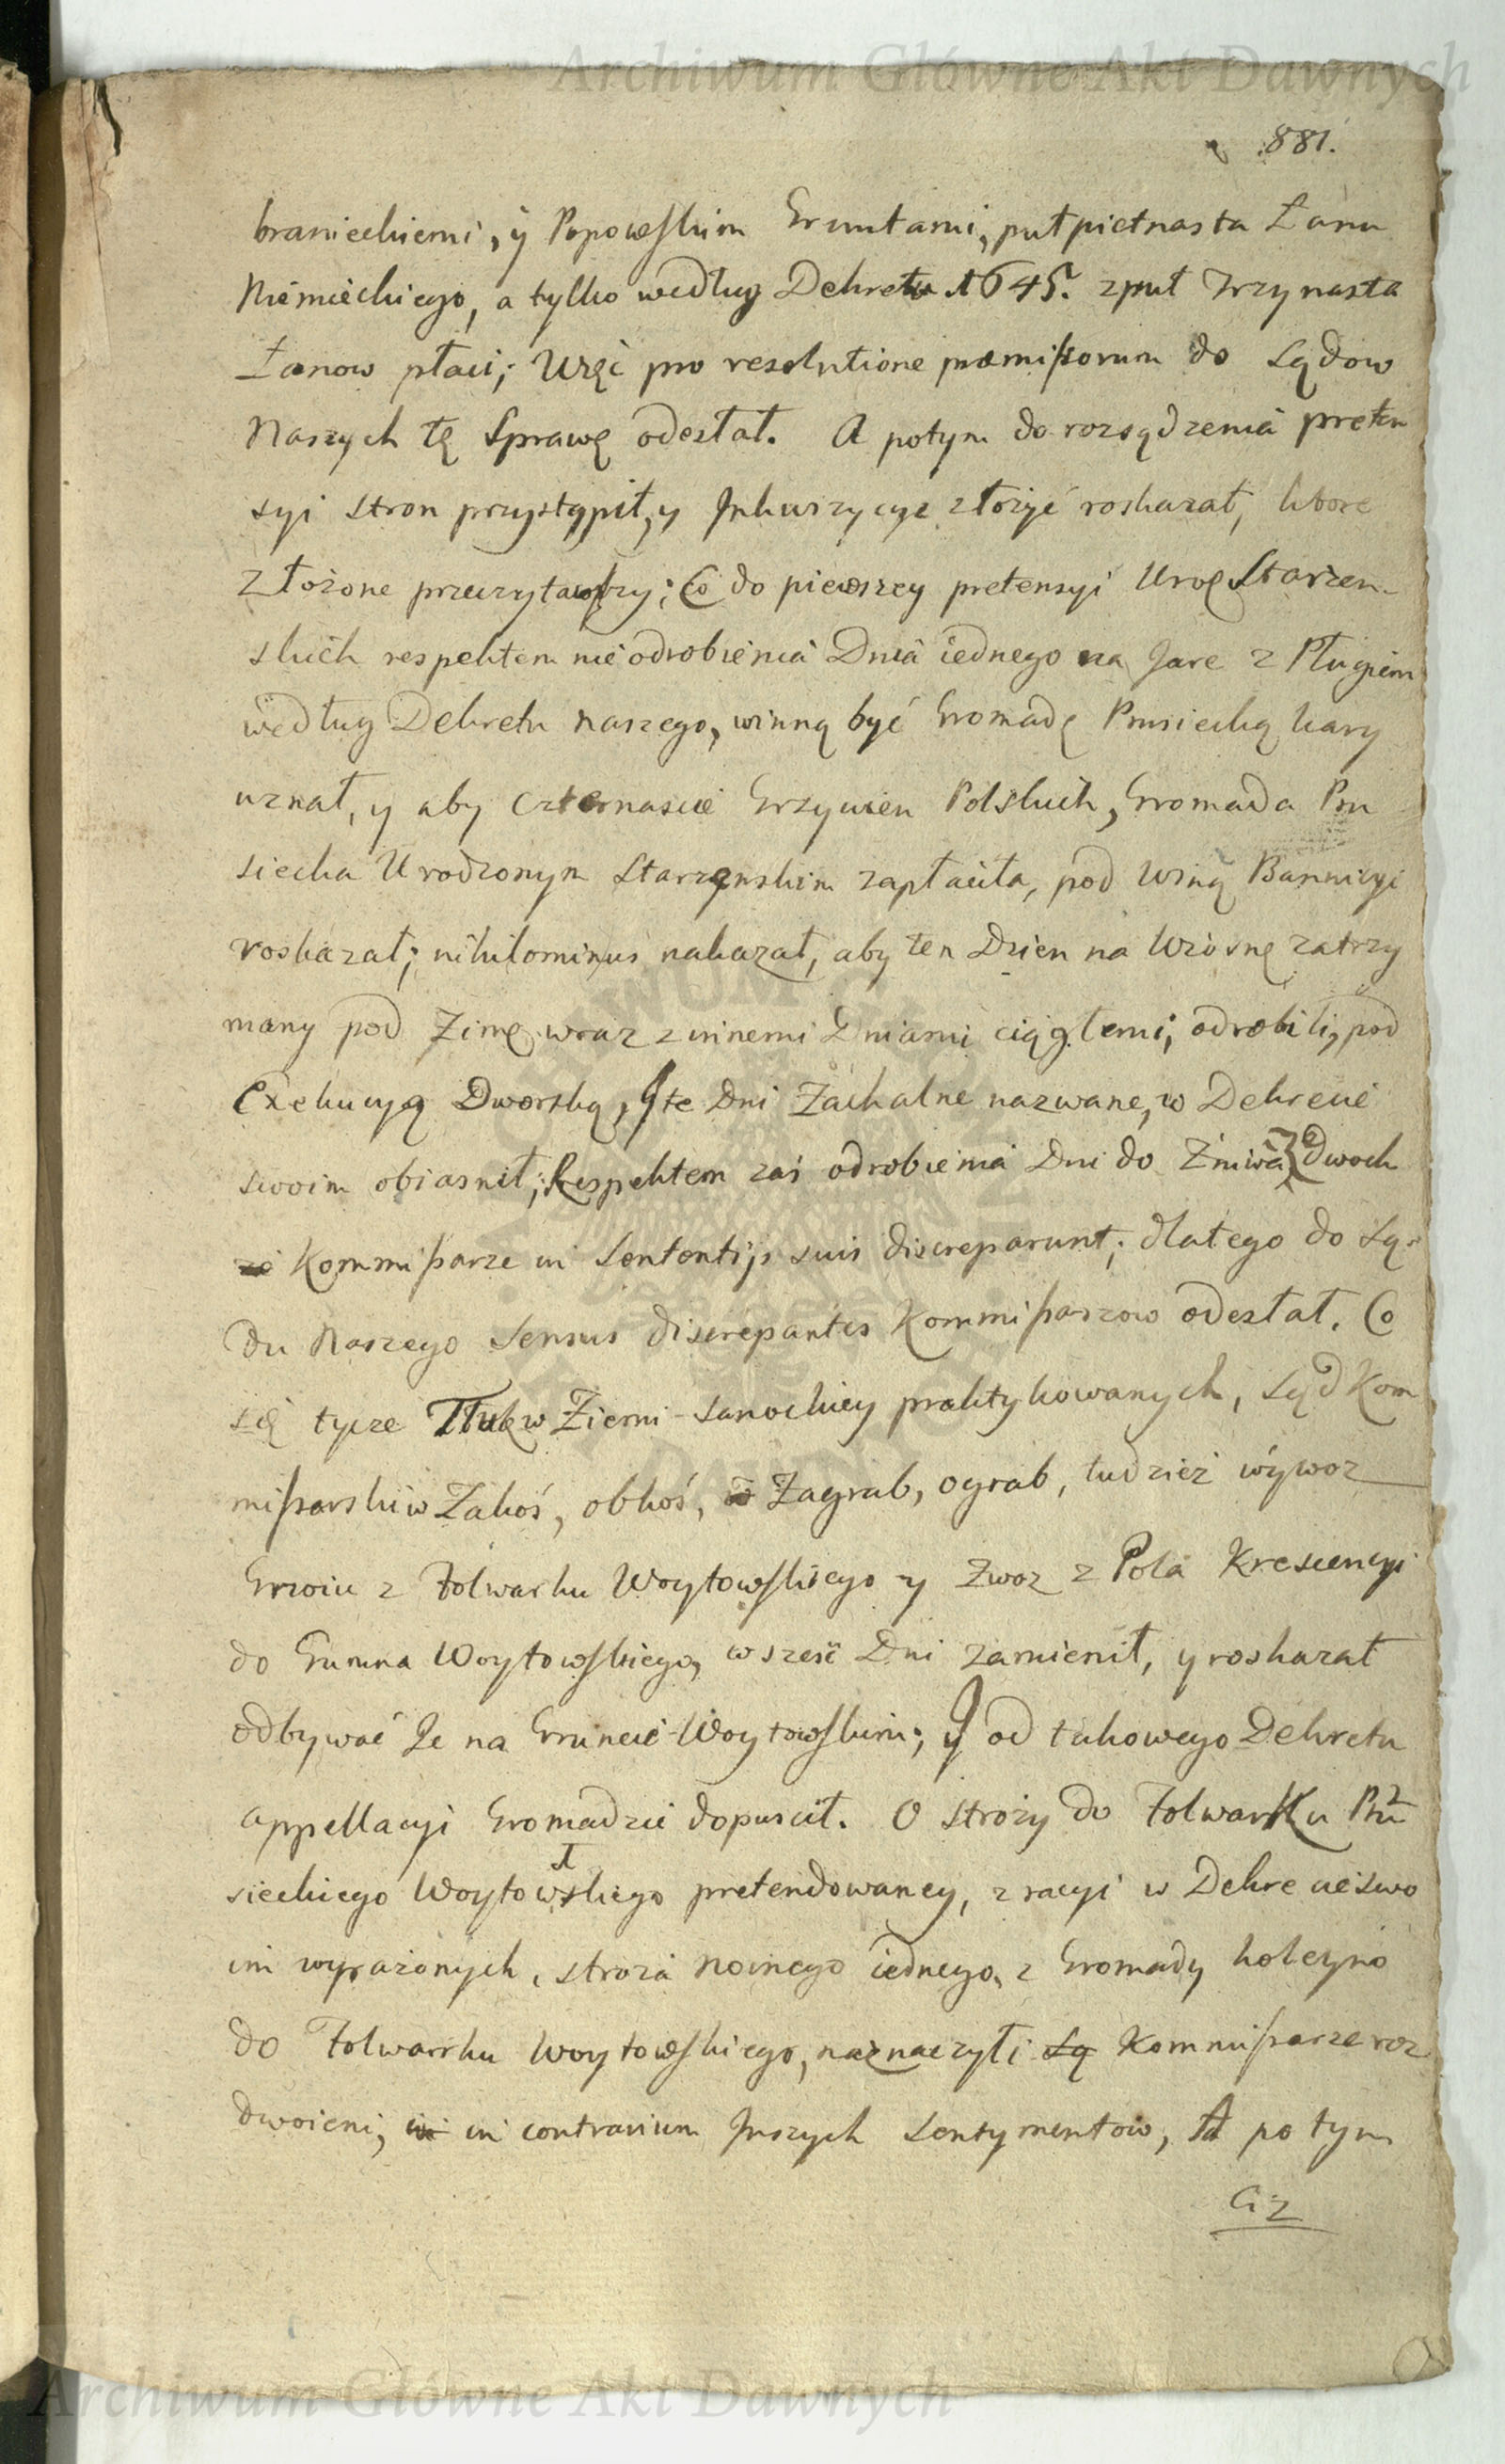 Archiwum Główne Akt Dawnych
881.
branieckiemi, y Popowskim Gruntami, puł piętnasta Łanu
Niemieckiego, a tylko według Dekretu 1645. z puł Trzynasta
Łanow płaci; Więc pro resolutione præmissorum do Sądow
Naszych tę Sprawę odesłał. A potym do rozsądzenia preten
syi stron przystąpił, y Inkwizycye złożyć roskazał, ktore
złożone przeczytawszy; Co do pierwszey pretensyi Uro: Starzen-
skich respektem nieodrobienia Dnia iednego na Jare z Pługiem
według Dekretu naszego, winną być Gromadę Prusiecką kary
uznał, y aby czternascie Grzywien Polskich, Gromada Pru
siecka Urodzonym Starzenskim zapłaciła, pod Winą Bannicyi
roskazał; nihilominus nakazał, aby ten Dzien na Wiosnę zatrzy
many pod Zimę wraz z innemi Dniami ciągłemi, odrobili, pod
Exekucyą Dworską, Y te Dni Zachalne nazwane, w Dekrecie
swoim obiasnił; Respektem zaś odrobienia Dni do Żniwa dwoch
Kommissarze in Sententijs suis discreparunt; dlatego do Są-
du Naszego Sensus discrepantes Kommissarzow odesłał. Co
się tycze Tłuk w Ziemi Sanockiey praktykowanych, Sąd Kom
missarski w Zakoś, obkoś, Zagrab, ograb, tudzież wywoz
Gnoiu z Folwarku Woytowskiego y Zwoz z Pola Krescencyi
do Gumna Woytowskiego, w sześć Dni zamienił, y roskazał
odbywać Je na Gruncie Woytowskim; Y od takowego Dekretu
appellacyi Gromadzie dopuscił. O Stroży do Folwarku Pru
sieckiego Woytowskiego pretendowaney, z racyi w Dekrecie swo
im wyrażonych, stroża nocnego iednego, z Gromady koleyno
do Folwarku Woytowskiego, naznaczyli Kommissarze roz
dwoieni, in contrarium Inszych Sentymentow, A po tym
Ciż
Archiwum Główne Akt Dawnych